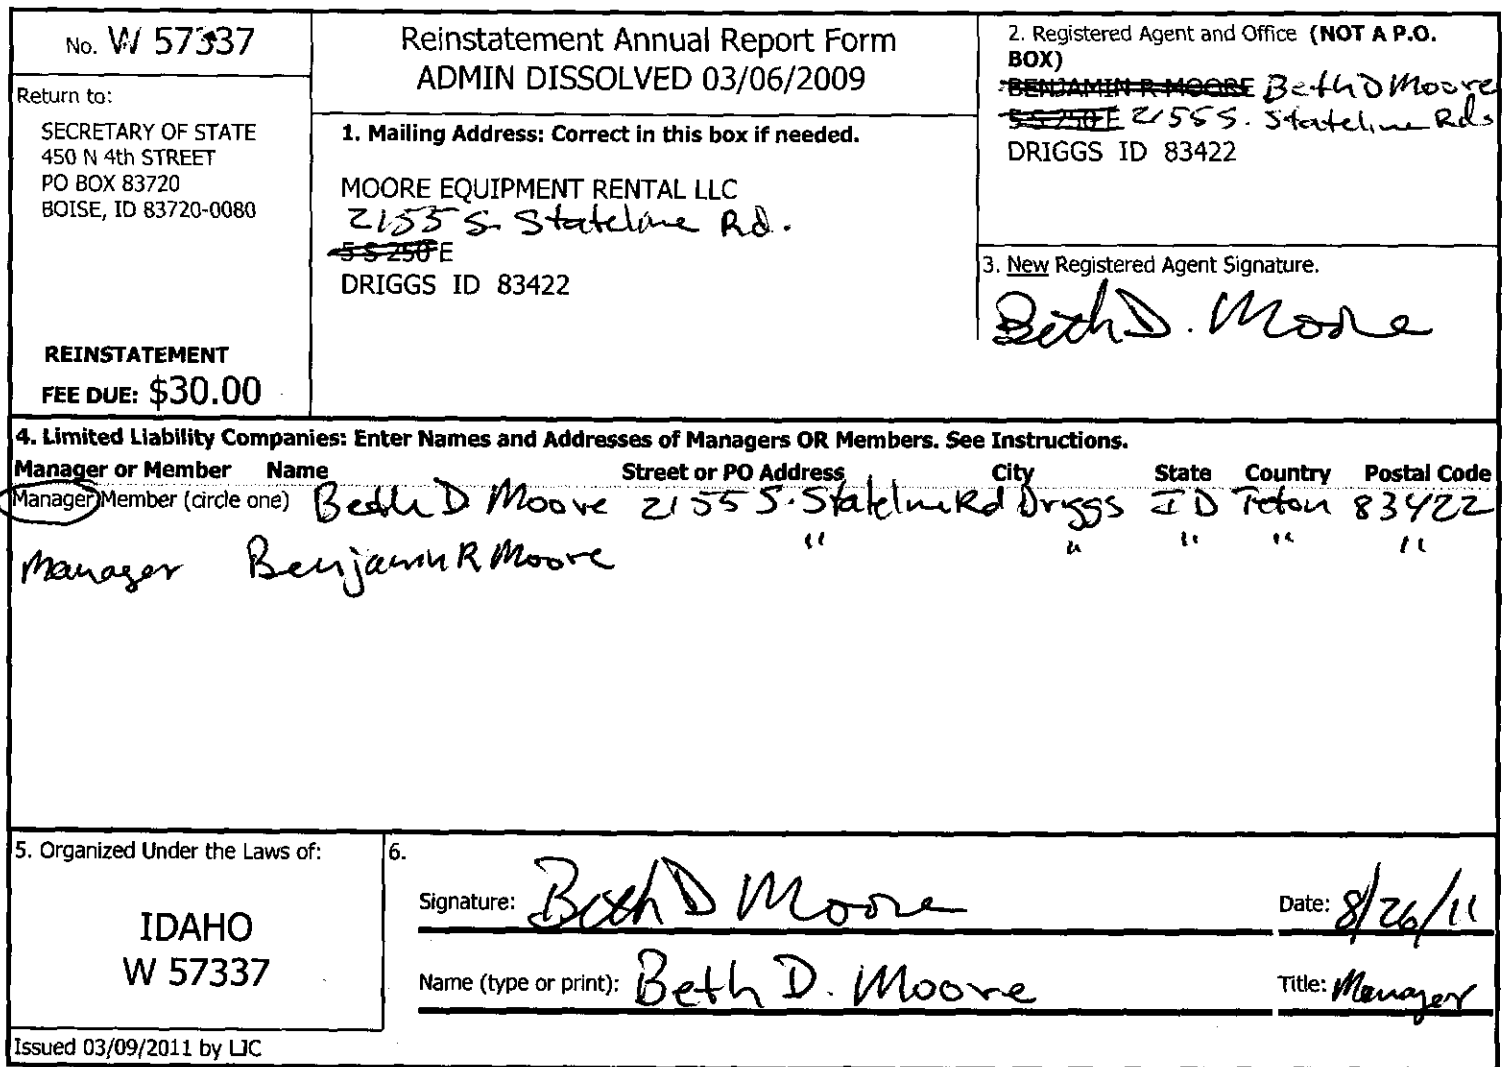 No. W 57337
Return to:
SECRETARY OF STATE
450 N 4th STREET
PO BOX 83720
BOISE, ID 83720-0080
REINSTATEMENT
FEE DUE: $30.00
Reinstatement Annual Report Form
ADMIN DISSOLVED 03/06/2009
1. Mailing Address: Correct in this box if needed.
MOORE EQUIPMENT RENTAL LLC
2155 S. Stateline Rd.
5 S 250 E
DRIGGS ID 83422
2. Registered Agent and Office (NOT A P.O.
BOX)
BENJAMIN R MOORE Beth D Moore
5 S 250 E 2155 S. Stateline Rd
DRIGGS ID 83422
3. New Registered Agent Signature.
Beth D. Moore
4. Limited Liability Companies: Enter Names and Addresses of Managers OR Members. See Instructions.
Manager or Member Name Street or PO Address City State Country Postal Code
Manager Member (circle one) Beth D Moore 2155 S. Stateline Rd Driggs ID Teton 83422
Manager Benjamin R Moore " " " " "
5. Organized Under the Laws of:
IDAHO
W 57337
6.
Signature: Beth D Moore Date: 8/26/11
Name (type or print): Beth D. Moore Title: Manager
Issued 03/09/2011 by LJC